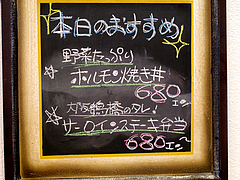 本日のおすすめ
野菜たっぷり
ホルモン焼き丼
680エン
大阪鶴橋のタレ!
サーロインステーキ弁当
680エン